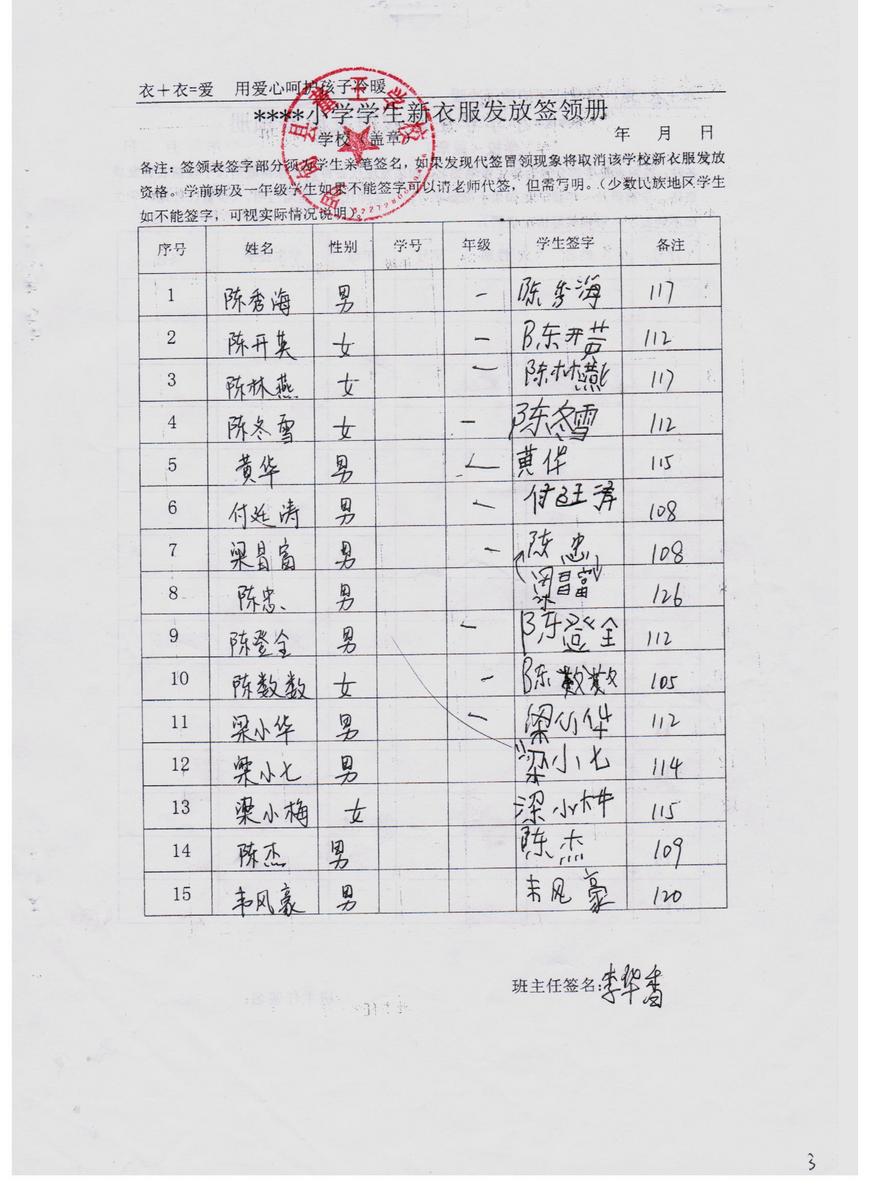 衣＋衣=爱 用爱心呵护孩子冷暖
****小学学生新衣服发放签领册
学校（盖章） 年 月 日
备注：签领表签字部分须为学生亲笔签名，如果发现代签冒领现象将取消该学校新衣服发放
资格。学前班及一年级学生如果不能签字可以请老师代签，但需写明。（少数民族地区学生
如不能签字，可视实际情况说明）。
序号 姓名 性别 学号 年级 学生签字 备注
1 陈秀海 男 一 陈秀海 117
2 陈开英 女 一 陈开英 112
3 陈林燕 女 一 陈林燕 117
4 陈冬雪 女 一 陈冬雪 112
5 黄华 男 一 黄华 115
6 付廷涛 男 一 付廷涛 108
7 梁昌富 男 一 陈忠 108
8 陈忠 男 梁昌富 126
9 陈登全 男 一 陈登全 112
10 陈数数 女 一 陈数数 105
11 梁小华 男 一 梁小华 112
12 梁小七 男 梁小七 114
13 梁小梅 女 梁小梅 115
14 陈杰 男 陈杰 109
15 韦风豪 男 韦风豪 120
班主任签名：李华香
3